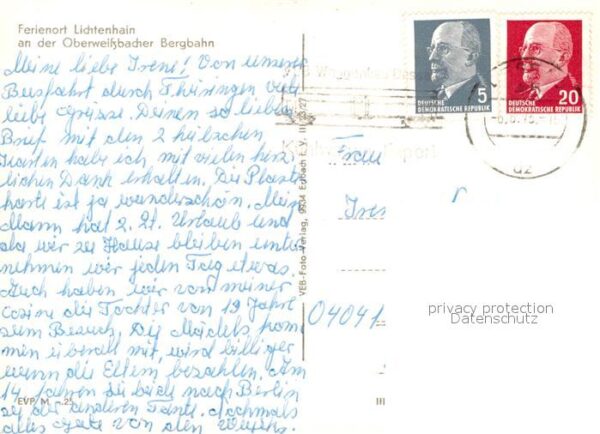 Ferienort Lichtenhain
an der Oberweißbacher Bergbahn
Meine liebe Irene! Von unserer
Busfahrt durch Thüringen viele
liebe Grüsse. Deinen so lieben
Brief mit den 2 hübschen
Karten habe ich, mit vielen herz
lichen Dank erhalten. Die
karte ist ja wunderschön. Mein
Mann hat 2. Urlaub und
da wir zu Hause bleiben unter
nehmen wir jeden Tag etwas.
Auch haben wir von meiner
Cosine die Tochter von 19 Jahre
zum Besuch. Die Mädels kom
men überall mit, wird billiger
wenn die Eltern bezahlen. Am
14 fahren sie beide nach Berlin
zu der anderen Tante. Nochmals
alles Gute von den
EVP/M -.25
VEB-Foto-Verlag, 9904 Eobach i. V.
5
DEUTSCHE
DEMOKRATISCHE REPUBLIK
20
DEUTSCHE
DEMOKRATISCHE REPUBLIK
Frau
04041
privacy protection
Datenschutz